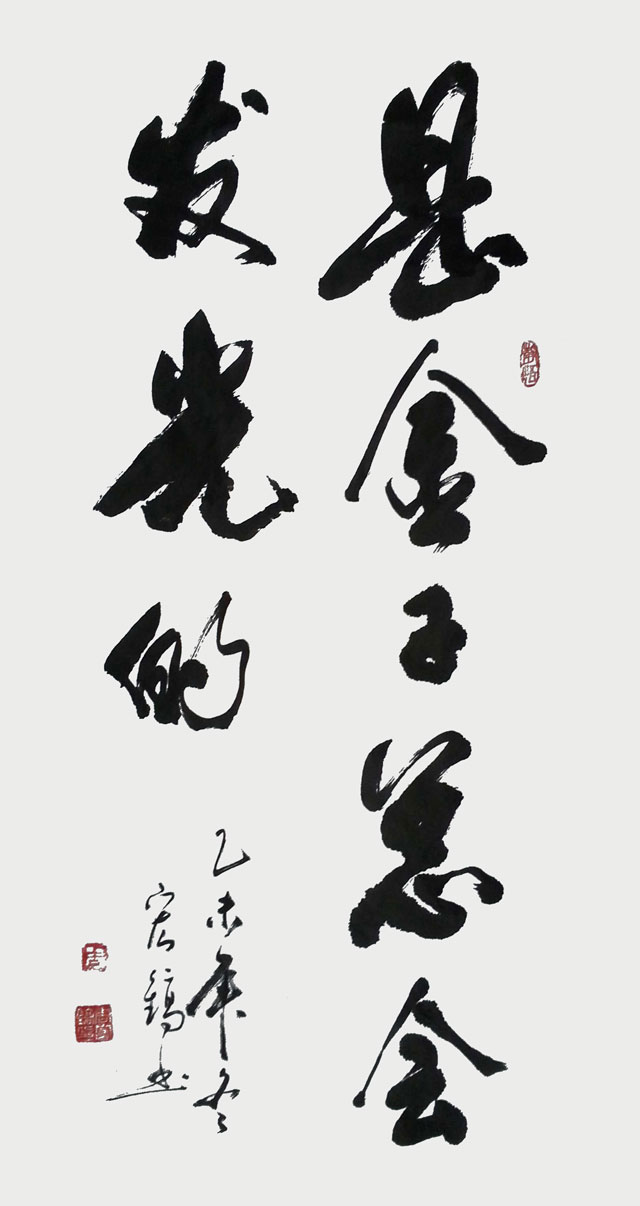 是金子总会
发光的
乙未年冬
宏镐书